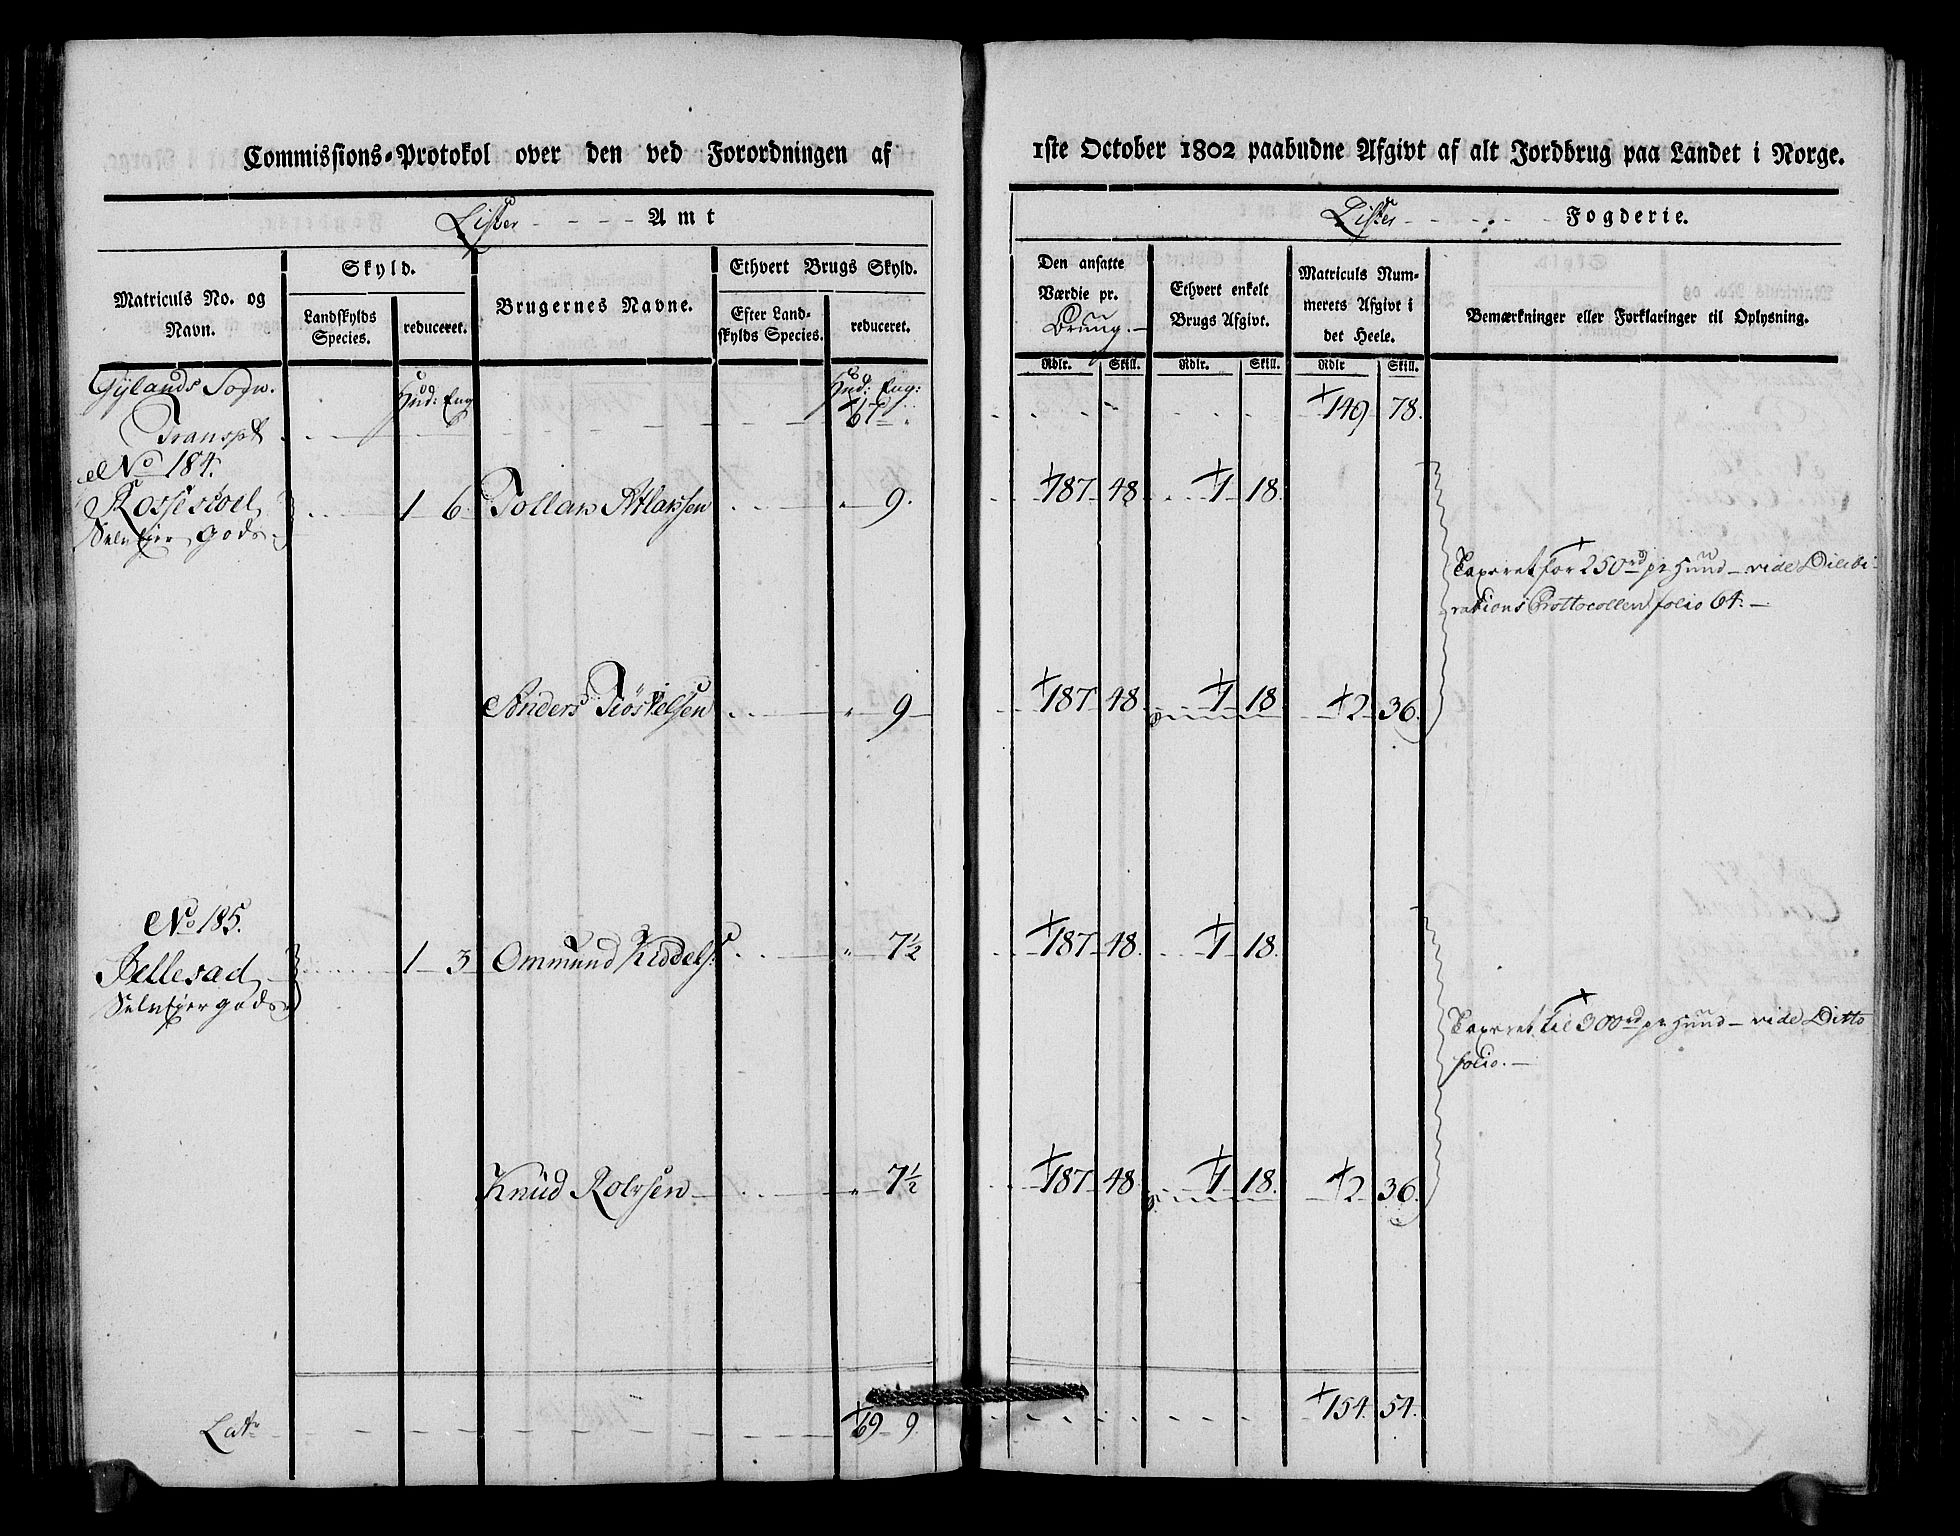 Commissions-Protokol over den ved Forordningen af
Lister - - - Amt
Matriculs No. og Navn.
Skyld.
Landskylds Species.
reduceret.
Brugernes Navne.
Ethvert Brugs Skyld.
Efter Landskylds Species.
reduceret.
Gylands Sogn.
Hud: Eng
Hud: Eng:
Transpt
6
67 "
No 184.
Rossesvel
1 6 Tollak Atlaksen " 9.
Selvejer Gods
Anders Tiöstelsen " 9
No 185.
Jellestad
1 3 Ommund Kiddels: " 7½
Selvejer gods
Knud Rolvsen " 7½
Latr 69 9
1ste October 1802 paabudne Afgivt af alt Jordbrug paa Landet i Norge.
Lister - - - Fogderie.
Den ansatte Værdie pr. Brug.
Ethvert enkelt Brugs Afgivt.
Matriculs Nummerets Afgivt i det Heele.
Bemærkninger eller Forklaringer til Oplysning.
Rdlr. Skill. Rdlr. Skill. Rdlr Skill.
149 78.
187 48 1 18.
Taxeret for 250rd pr Huud - vide Dilibi-
rations Prottocollen folio 64. -
187 48 1 18 2 36.
187 48 1 18.
Taxeret til 300rd pr Huud - vide Ditto
folio. -
187 48 1 18. 2 36.
154. 54.